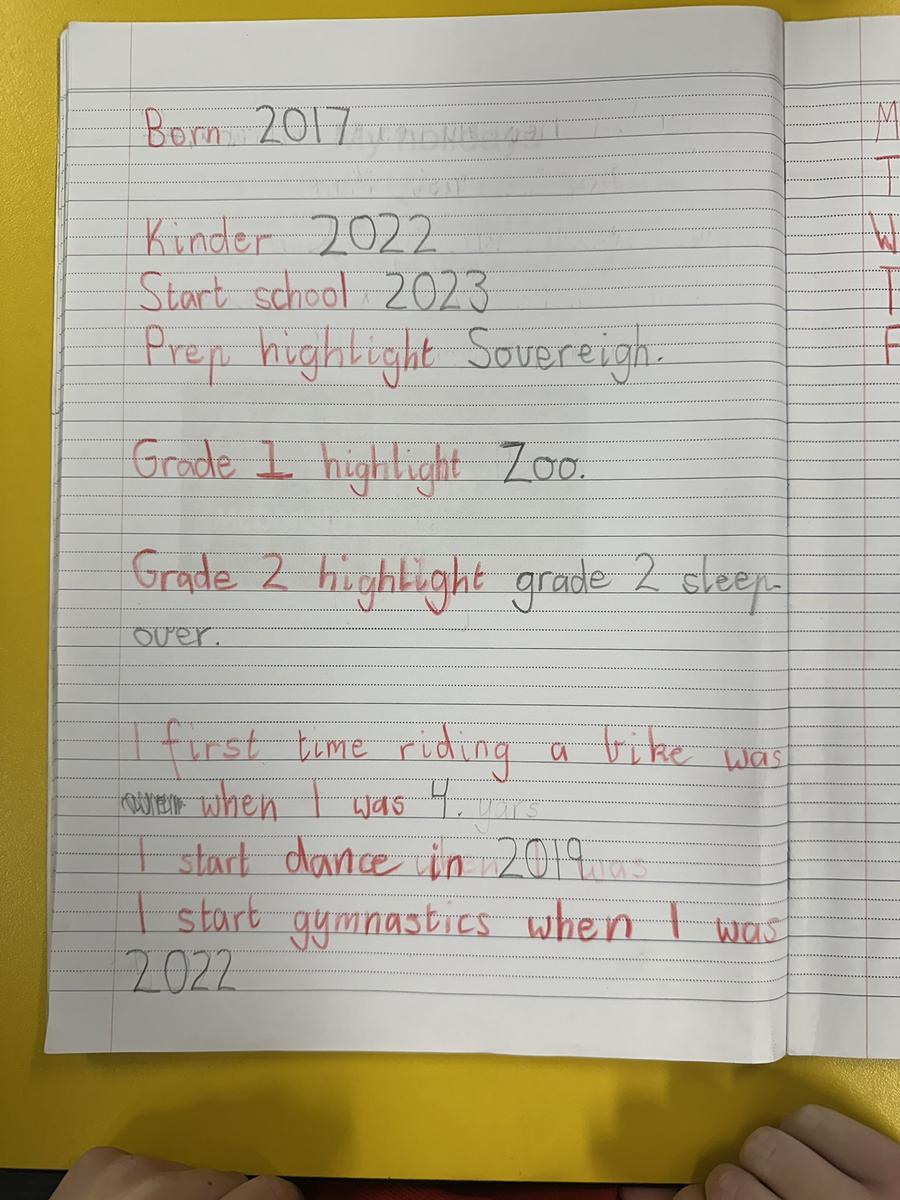 Born 2017
Kinder 2022
Start school 2023
Prep highlight Sovereigh.
Grade 1 highlight Zoo.
Grade 2 highlight grade 2 sleep-
over.
I first time riding a bike was
when I was 4. yars
I start dance in 2019 was
I start gymnastics when I was
2022
M
T
W
T
F